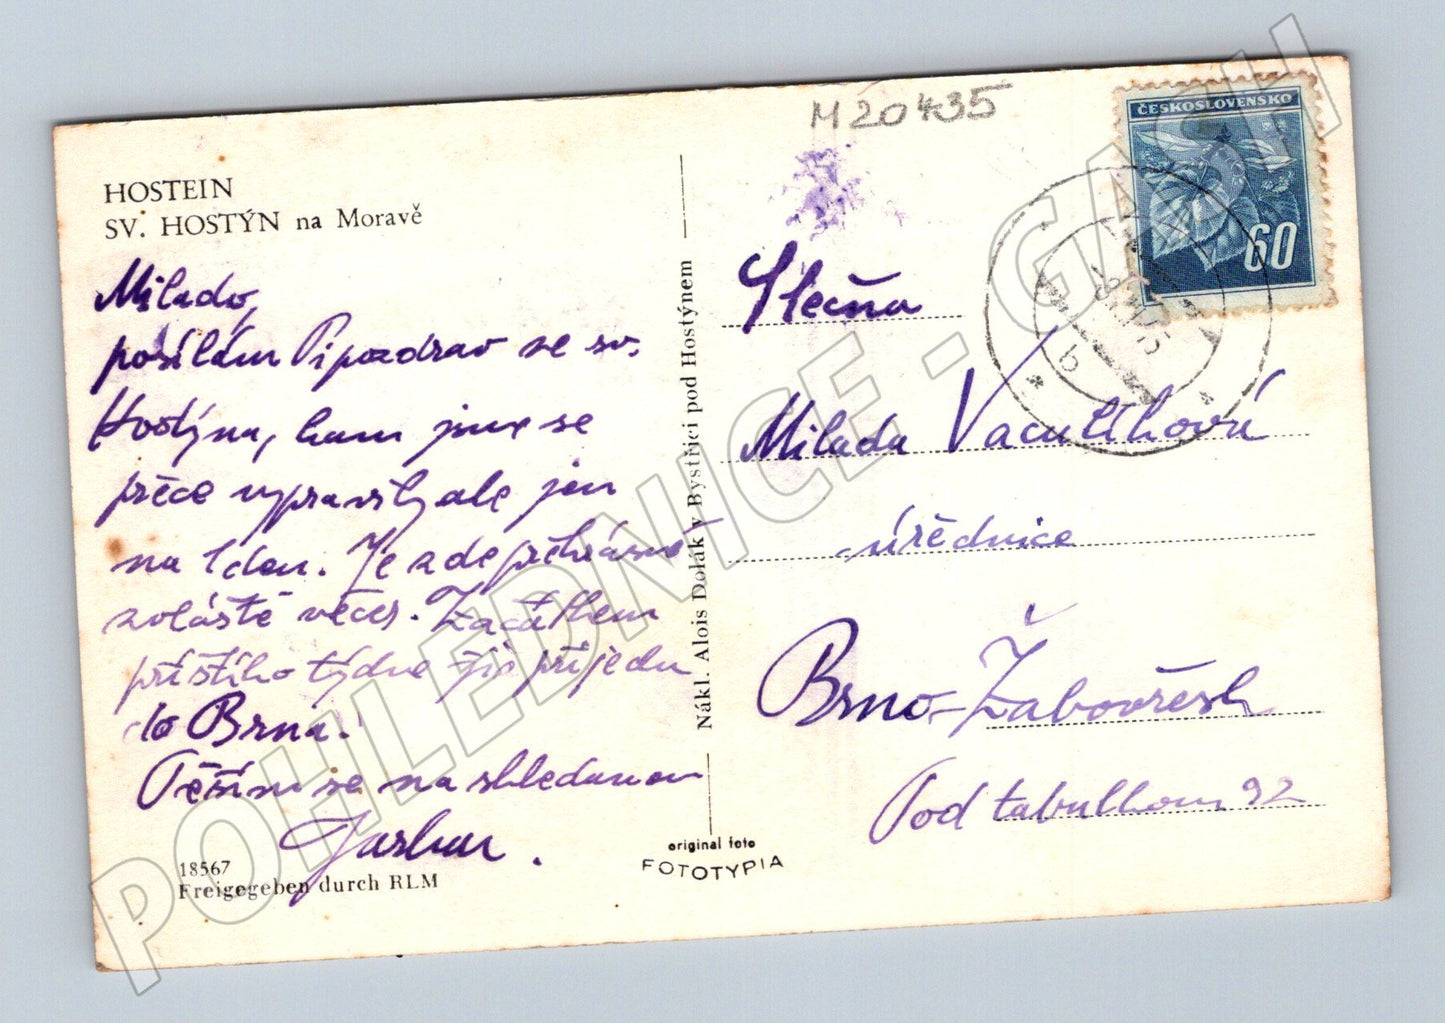 HOSTEIN
SV. HOSTÝN na Moravě
Milado,
posílám Ti pozdrav se sv.
Hostýna, kam jsme se
přece vypravily ale jen
na 1 den. Je zde překrásně
zvláště večer. Začátkem
příštího týdne již přijedu
do Brna.
Těším se na shledanou
18567
Freigegeben durch RLM
original foto
FOTOTYPIA
Nákl. Alois Dolák v Bystřici pod Hostýnem
M 20435
ČESKOSLOVENSKO
60
Slečna
Milada Vaculíková
úřednice
Brno-Žabovřesk
Pod tabulkou 92
POHLEDNICE - GASH